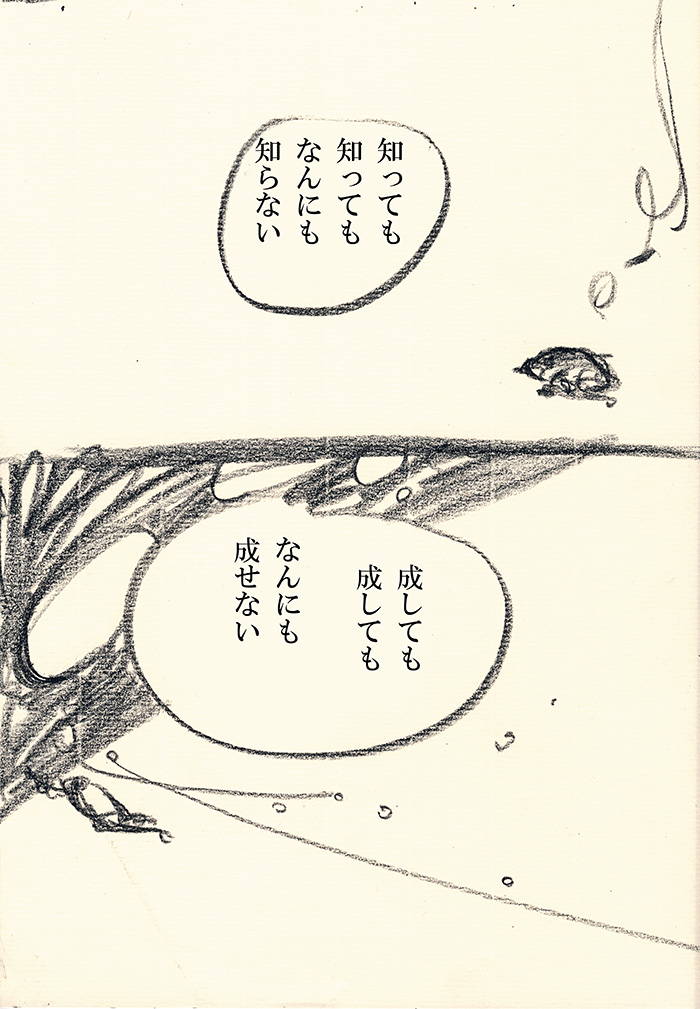 知っても
知っても
なんにも
知らない
成しても
成しても
なんにも
成せない